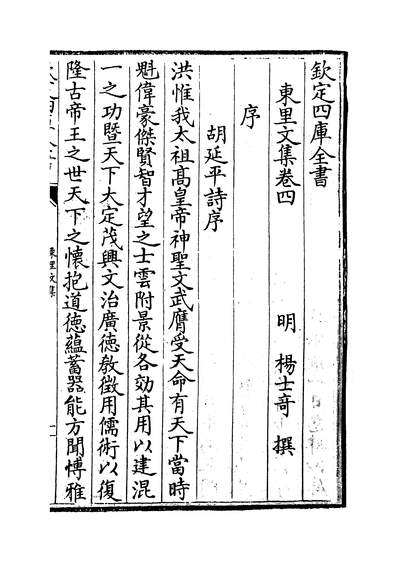 欽定四庫全書
東里文集卷四
明 楊士竒 撰
序
胡延平詩序
洪惟我太祖髙皇帝神聖文武膺受天命有天下當時
魁偉豪傑賢智才望之士雲附景從各効其用以建混
一之功暨天下大定茂興文治廣徳教徴用儒術以復
隆古帝王之世天下之懐抱道徳蘊蓄器能方聞博雅
東里文集